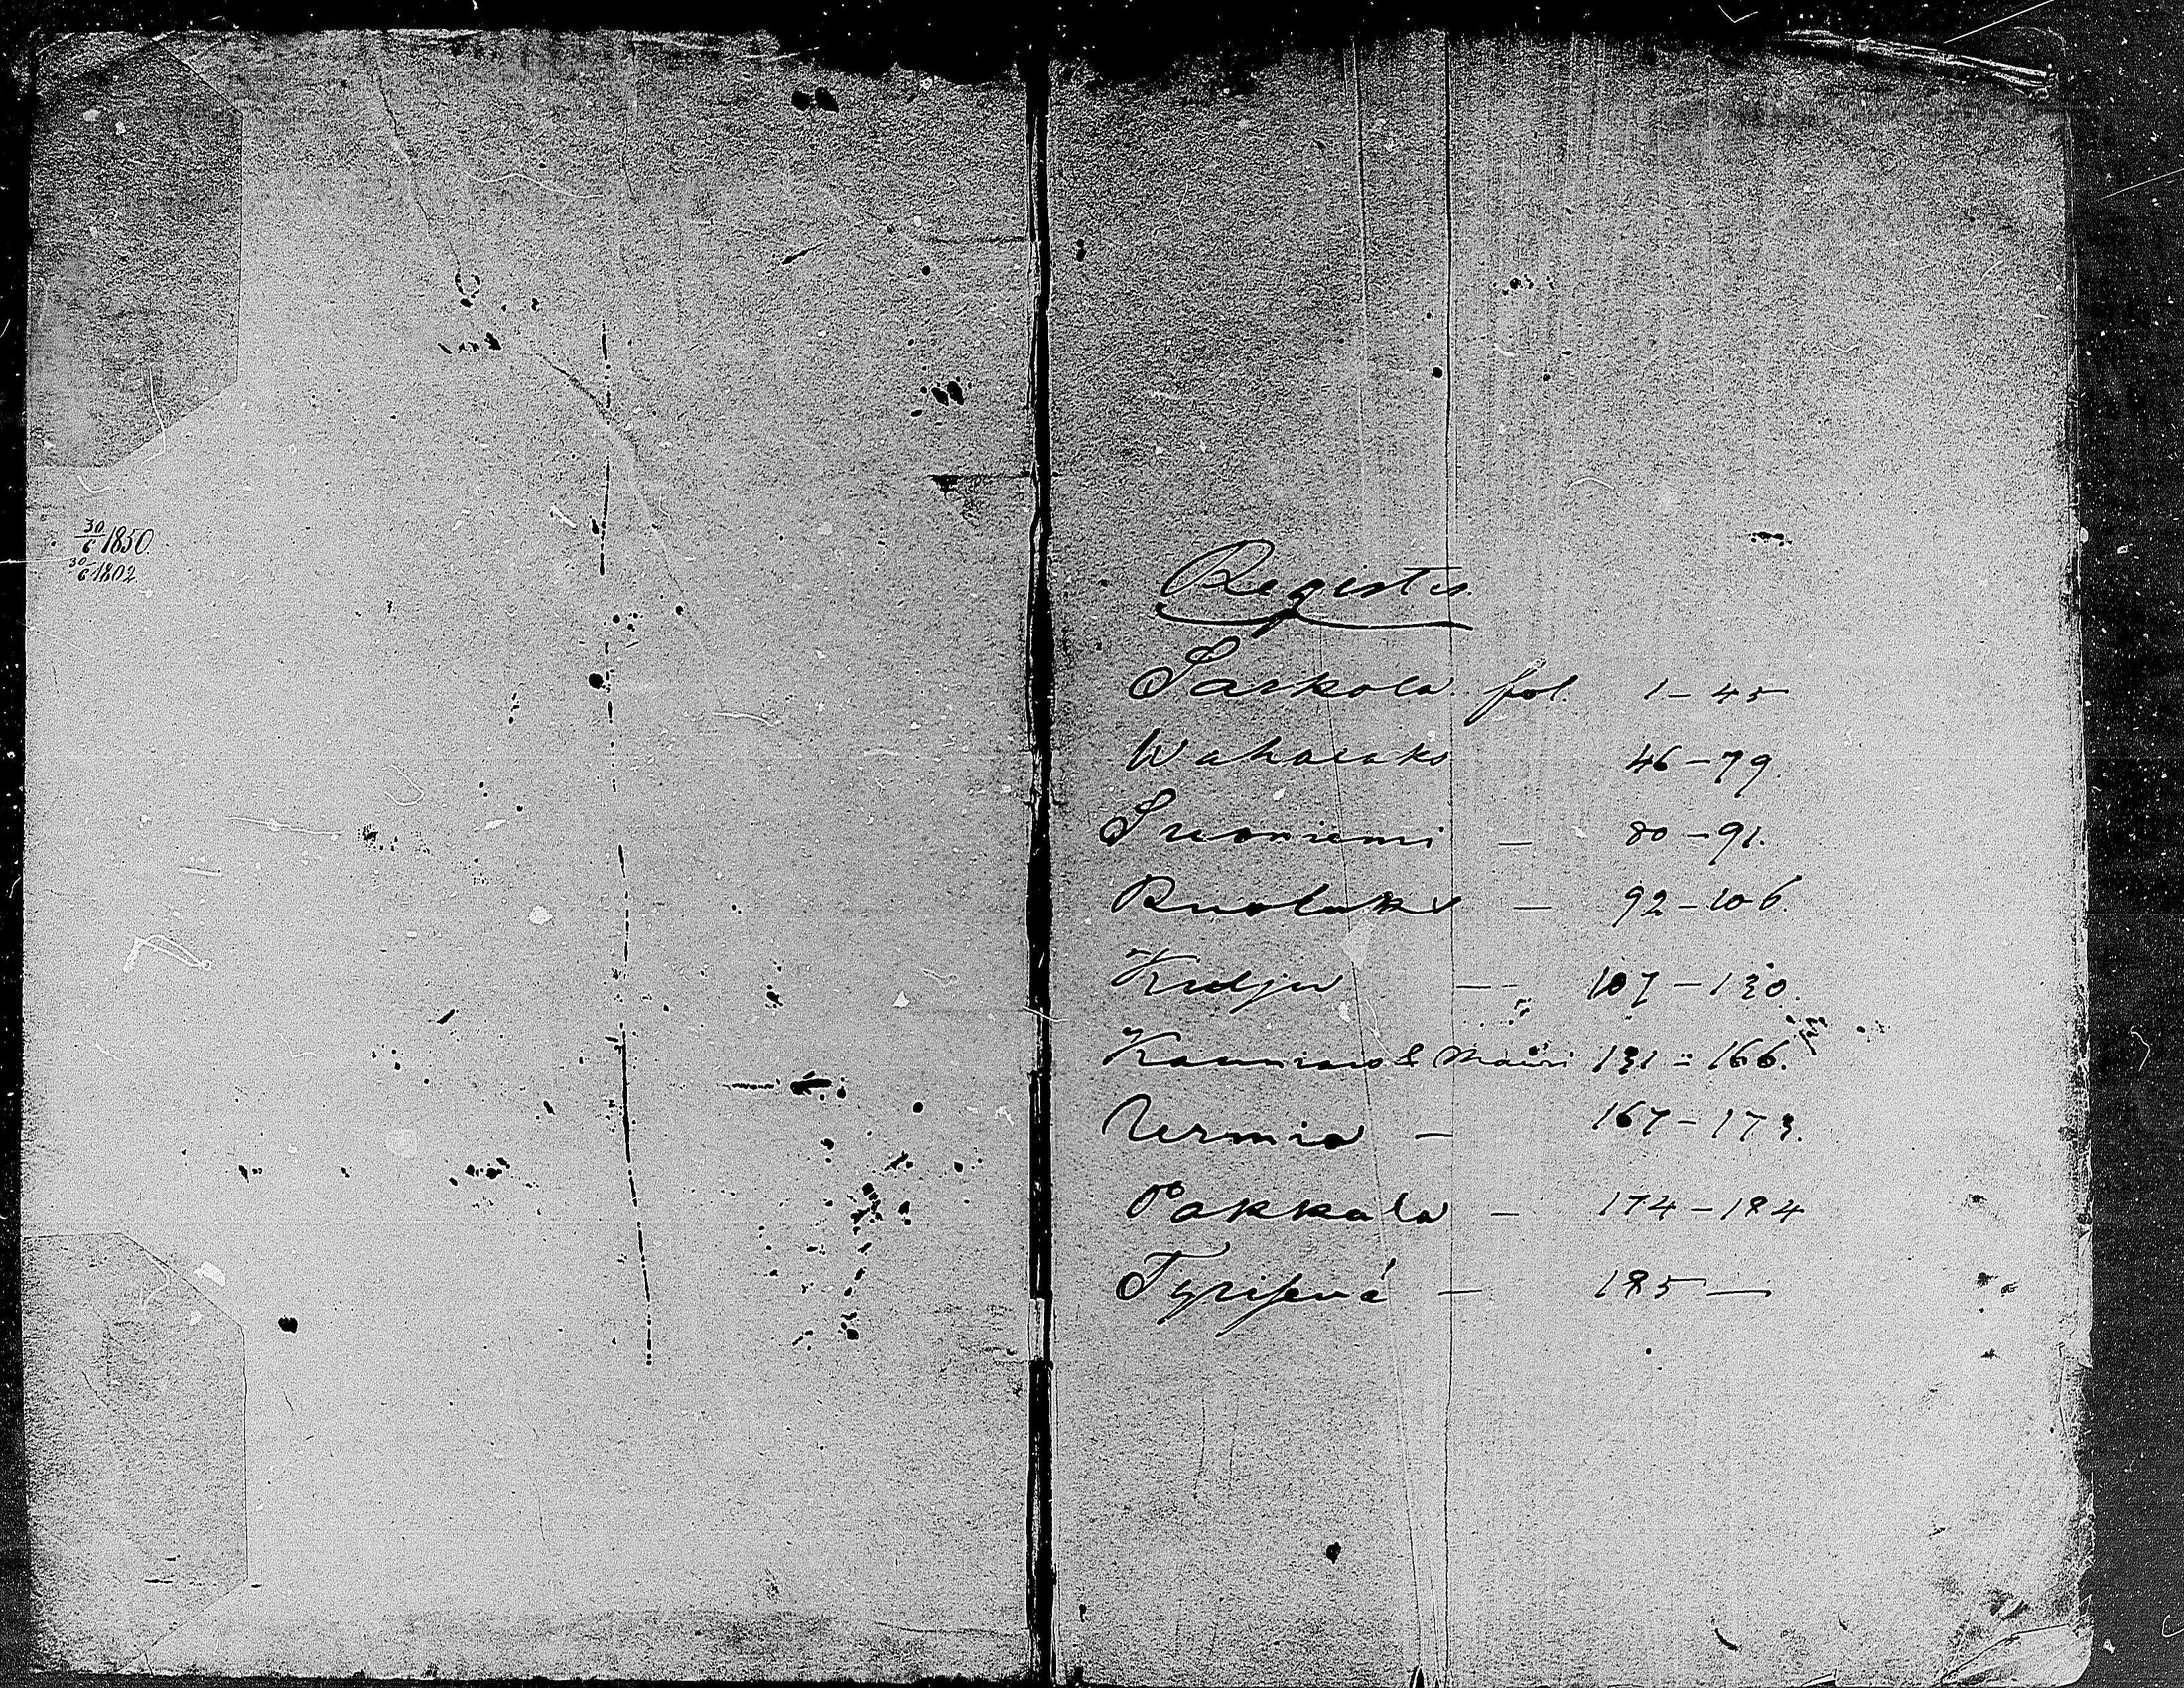 30/6 1850.
30/6 1802.
Register
Sarkola fol. 1-45
Waholaks 46-79.
Suoniemi — 80-91.
Ruolaks — 92-106.
Kulju — 107-130.
Kauniais & Mauri 131-166.
Urmia — 167-173.
Pakkala — 174-184
Tyrisevä — 185 —